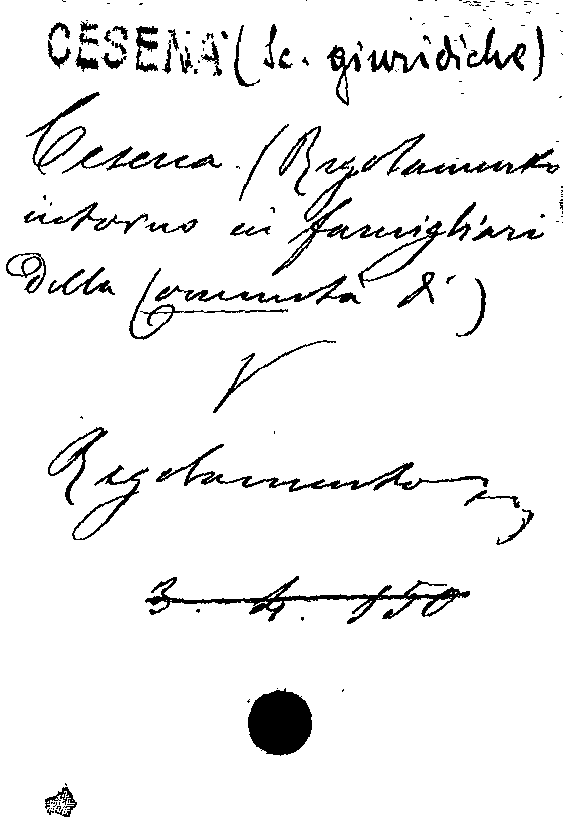 CESENA (Sc. giuridiche)
Cesena. (Regolamento
intorno ai famigliari
della Comunità di)
V
Regolamento
3. 4. 150